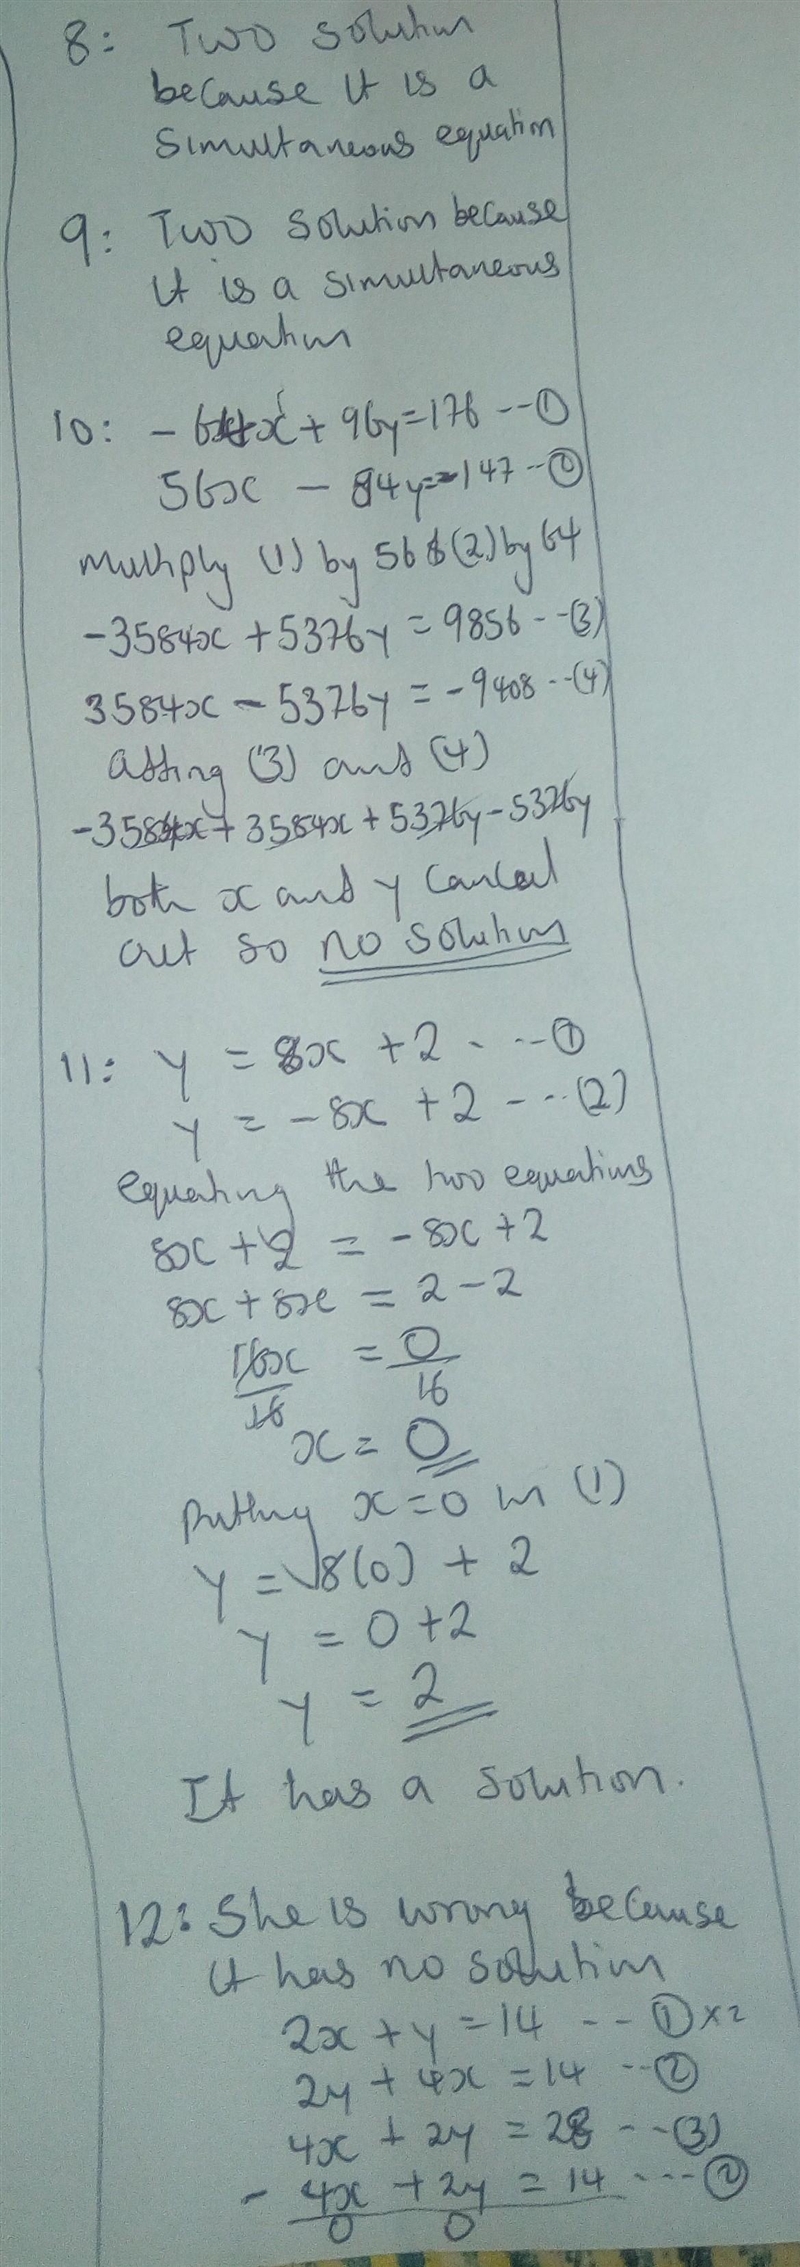 8: Two solution
because it is a
simultaneous equation
9: Two solution because
it is a simultaneous
equation
10: -64x + 96y = 176 --- ①
56x - 84y = -147 -- ②
multiply (1) by 56 & (2) by 64
-3584x + 5376y = 9856 -- (3)
3584x - 5376y = -9408 -- (4)
Adding (3) and (4)
-3584x + 3584x + 5376y - 5376y
both x and y cancel
out so no solution
11: y = 8x + 2 - -- ①
y = -8x + 2 - -- (2)
equating the two equations
8x + 2 = -8x + 2
8x + 8x = 2 - 2
16x/16 = 0/16
x = 0
Putting x = 0 in (1)
y = 8(0) + 2
y = 0 + 2
y = 2
It has a solution.
12: She is wrong because
it has no solution
2x + y = 14 -- ① x 2
2y + 4x = 14 -- ②
4x + 2y = 28 -- (3)
- 4x + 2y = 14 --- ②
0 0